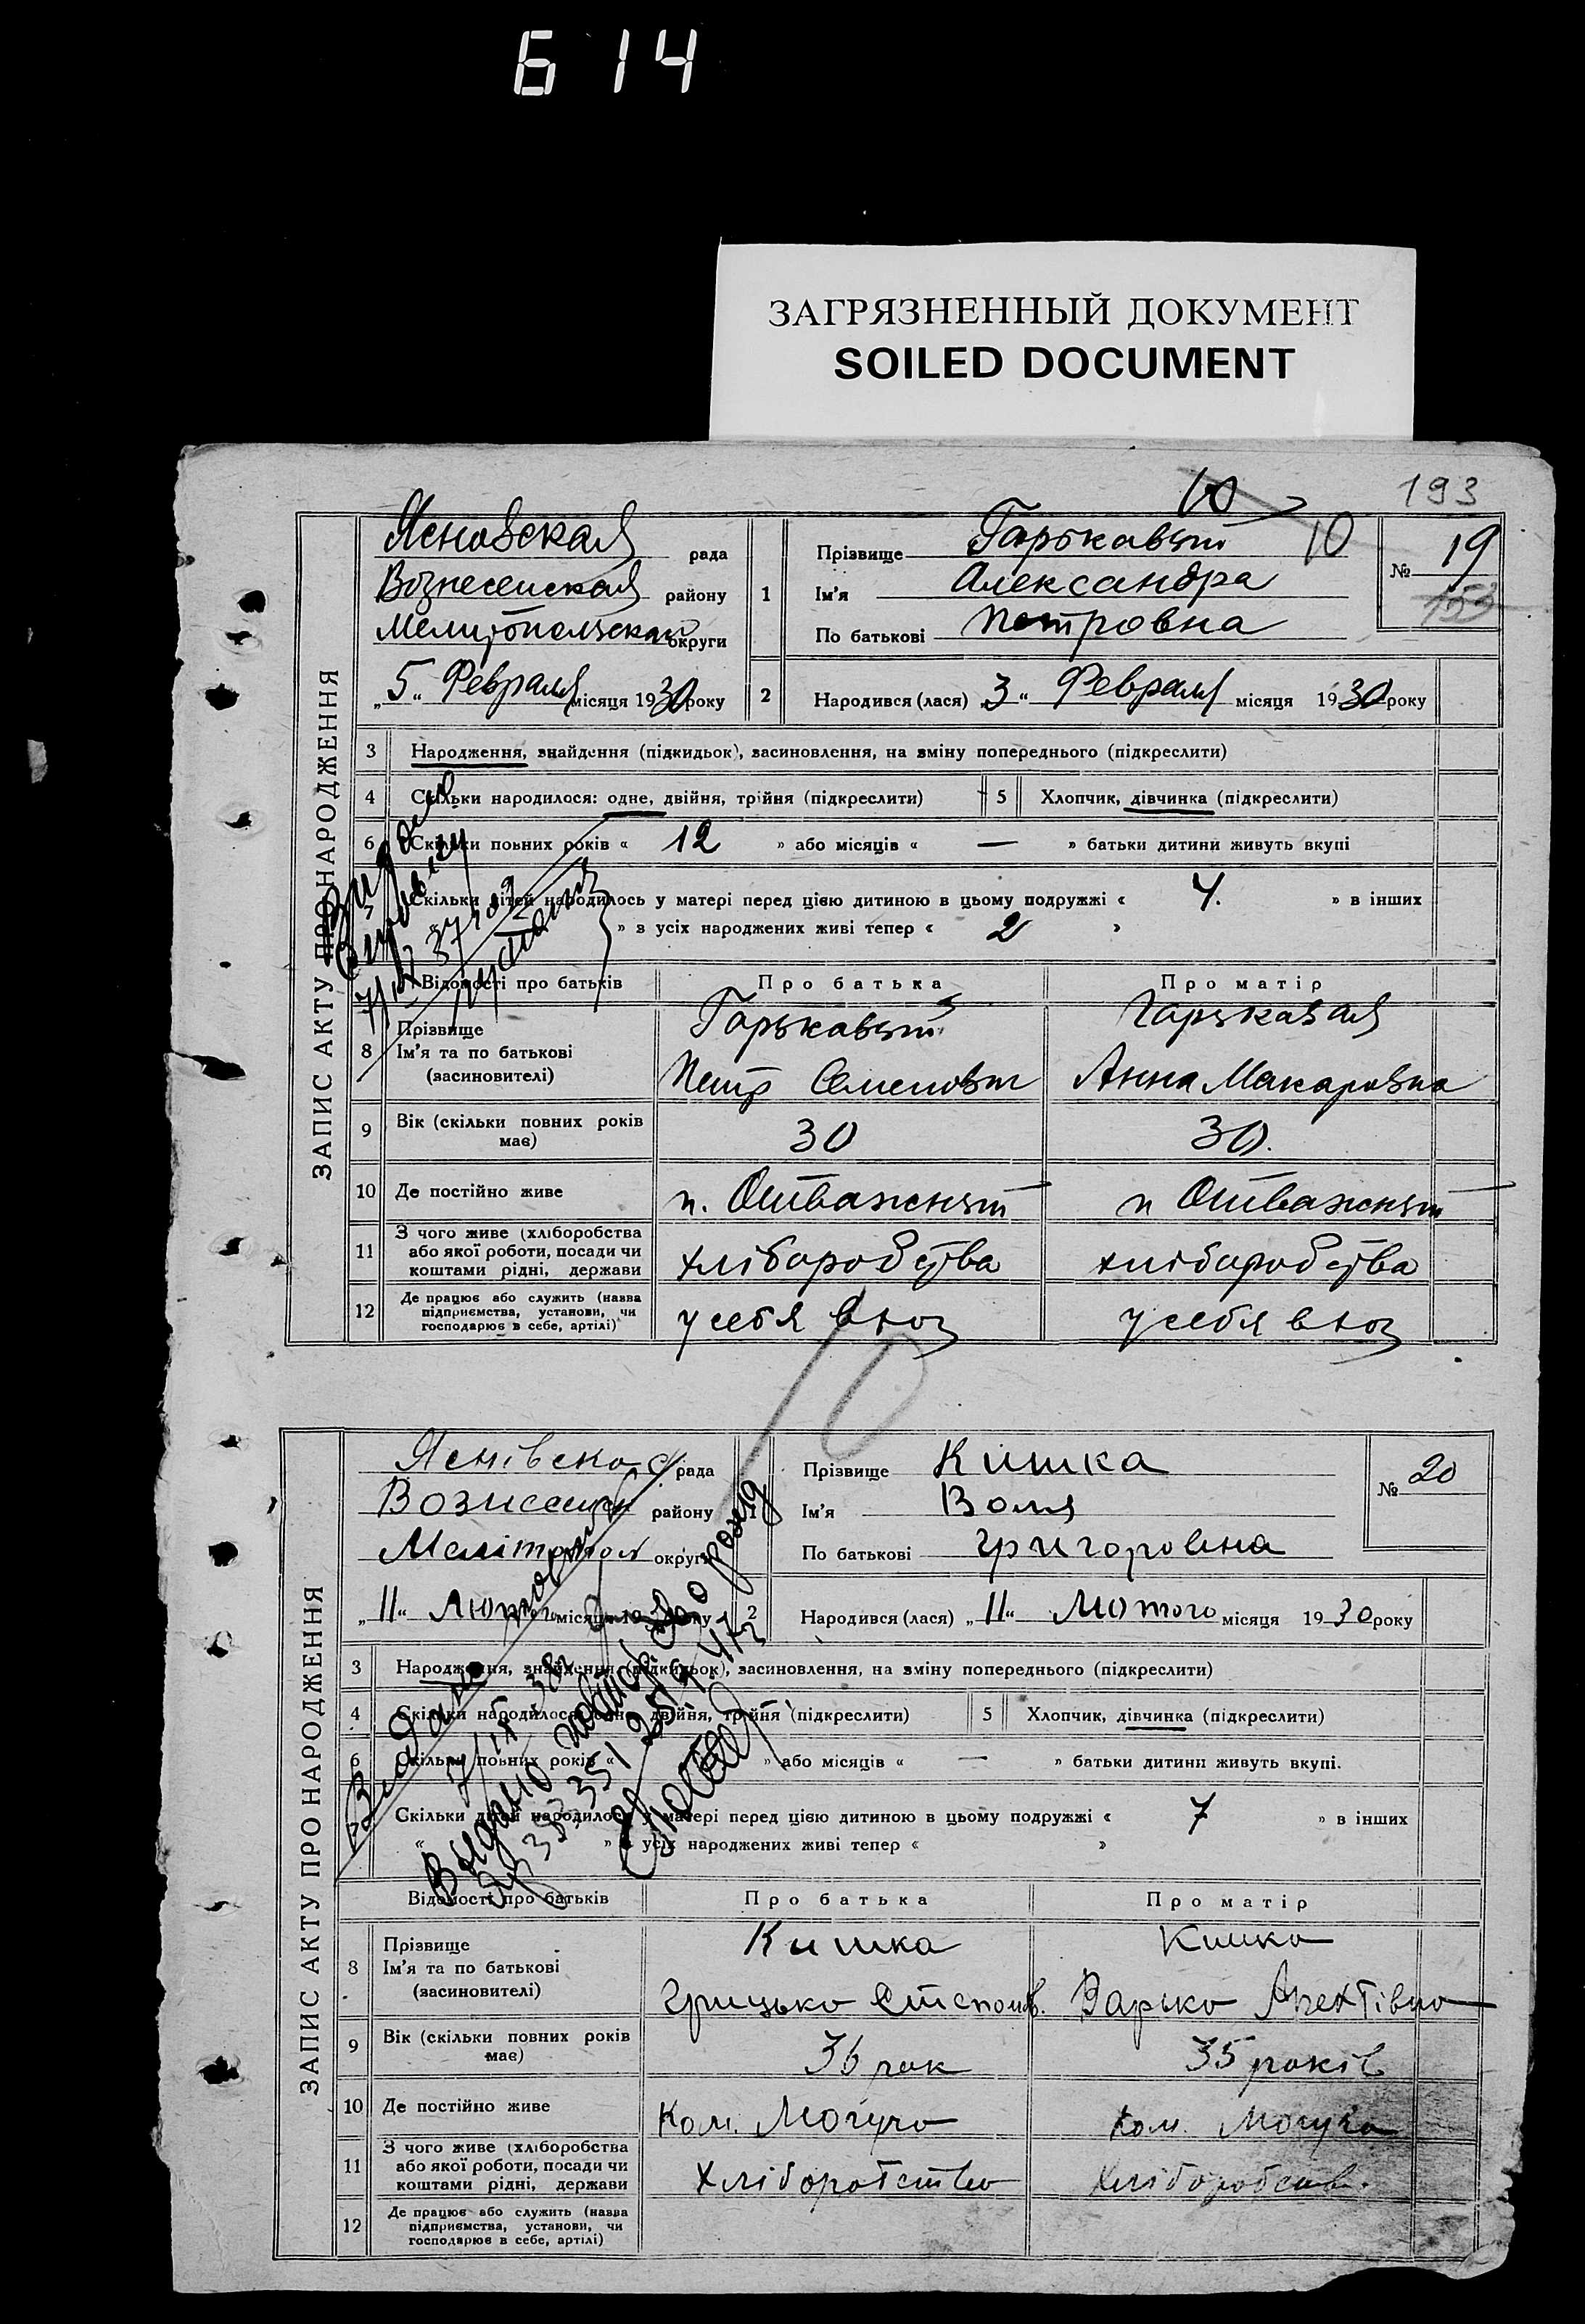 614
ЗАГРЯЗНЕННЫЙ ДОКУМЕНТ
SOILED DOCUMENT
193
10
ЗАПИС АКТУ ПРО НАРОДЖЕННЯ
Ясновская рада
Вознесенская району
Мелитопольская округи
„5„ Февраля місяця 1930 року
1
Прізвище Горькавый
Ім'я Александра
По батькові Петровна
№ 19
2 Народився (лася) „3„ Февраля місяця 1930 року
3 Народження, знайдення (підкидьок), засиновлення, на зміну попереднього (підкреслити)
4 Скільки народилося: одне, двійня, трійня (підкреслити)
5 Хлопчик, дівчинка (підкреслити)
6 Скільки повних років « 12 » або місяців « — » батьки дитини живуть вкупі
7 Скільки дітей народилось у матері перед цією дитиною в цьому подружжі « 4. » в інших
» в усіх народжених живі тепер « 2 »
Відомості про батьків Про батька Про матір
8 Прізвище
Ім'я та по батькові
(засиновителі)
Горькавый
Петр Семенович
Горькавая
Анна Макаровна
9 Вік (скільки повних років має) 30 30.
10 Де постійно живе п. Отважный п Отважный
11 З чого живе (хліборобства
або якої роботи, посади чи
коштами рідні, держави
хліборобства хліборобства
12 Де працює або служить (назва
підприємства, установи, чи
господарює в себе, артілі)
у себя в хоз у себя в хоз
10
ЗАПИС АКТУ ПРО НАРОДЖЕННЯ
рада
району
округи
„11„ Лютого місяця 1930 року
1
Прізвище Кишка
Ім'я Воля
По батькові Григоровна
№ 20
2 Народився (лася) „11„ Лютого місяця 1930 року
3 Народження, знайдення (підкидьок), засиновлення, на зміну попереднього (підкреслити)
4 Скільки народилося: одне, двійня, трійня (підкреслити)
5 Хлопчик, дівчинка (підкреслити)
6 Скільки повних років « » або місяців « — » батьки дитини живуть вкупі.
7 Скільки дітей народилось у матері перед цією дитиною в цьому подружжі « 7 » в інших
« » в усіх народжених живі тепер « »
Відомості про батьків Про батька Про матір
8 Прізвище
Ім'я та по батькові
(засиновителі)
Кишка
Грицько Степанов.
Кишка
Дарько
9 Вік (скільки повних років має) 36 рок 35 років
10 Де постійно живе Ком. Могуча Ком. Могуча
11 З чого живе (хліборобства
або якої роботи, посади чи
коштами рідні, держави
Хліборобство Хліборобств.
12 Де працює або служить (назва
підприємства, установи, чи
господарює в себе, артілі)